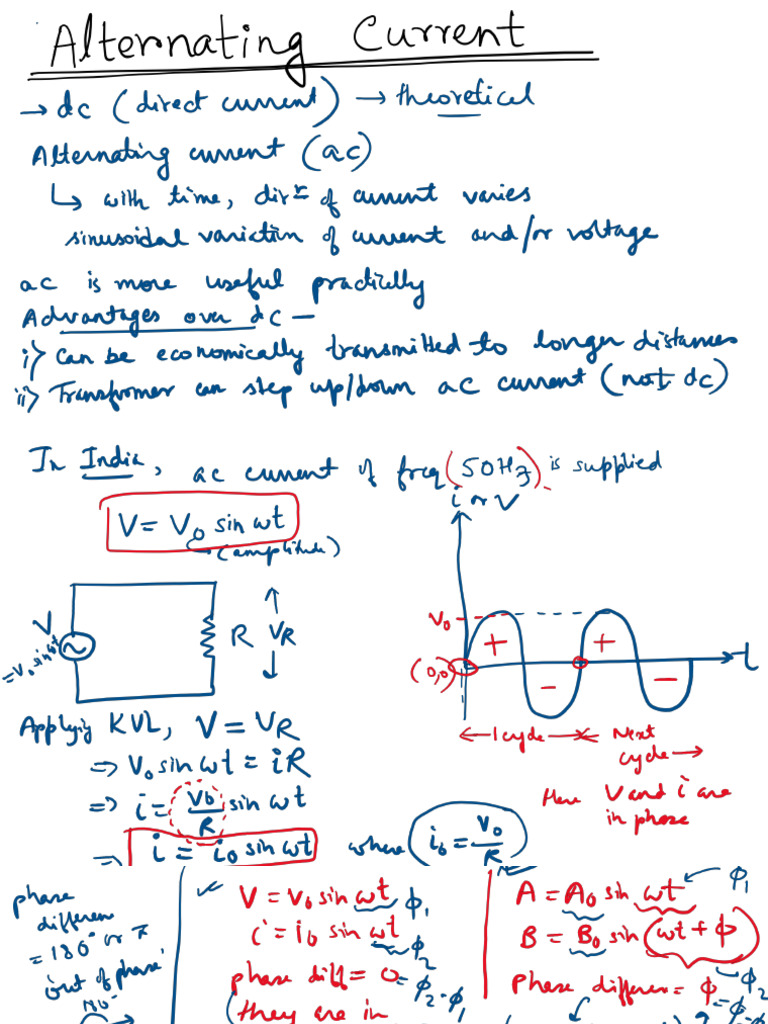 Alternating Current
→ dc (direct current) → theoretical
Alternating current (ac)
↳ with time, dirⁿ of current varies
sinusoidal variation of current and/or voltage
ac is more useful practically
Advantages over dc –
i) Can be economically transmitted to longer distances
ii) Transformer can step up/down ac current (not dc)
In India, ac current of freq (50Hz) is supplied
V = V₀ sin ωt
(amplitude)
i or V
V
= V₀ sin ωt
R
V_R
V₀
+
+
−
−
(0,0)
t
1 cycle
Next
cycle →
Here V and i are
in phase
Applying KVL, V = V_R
⇒ V₀ sin ωt = iR
⇒ i = V₀/R sin ωt
⇒ i = i₀ sin ωt where i₀ = V₀/R
phase
differen
= 180° or π
'out of phase'
180°
V = V₀ sin ωt φ₁
i = i₀ sin ωt φ₂
phase diff = 0 = φ₂ - φ₁
(they are in
A = A₀ sin ωt φ₁
B = B₀ sin (ωt + φ)
φ₂
phase differen = φ